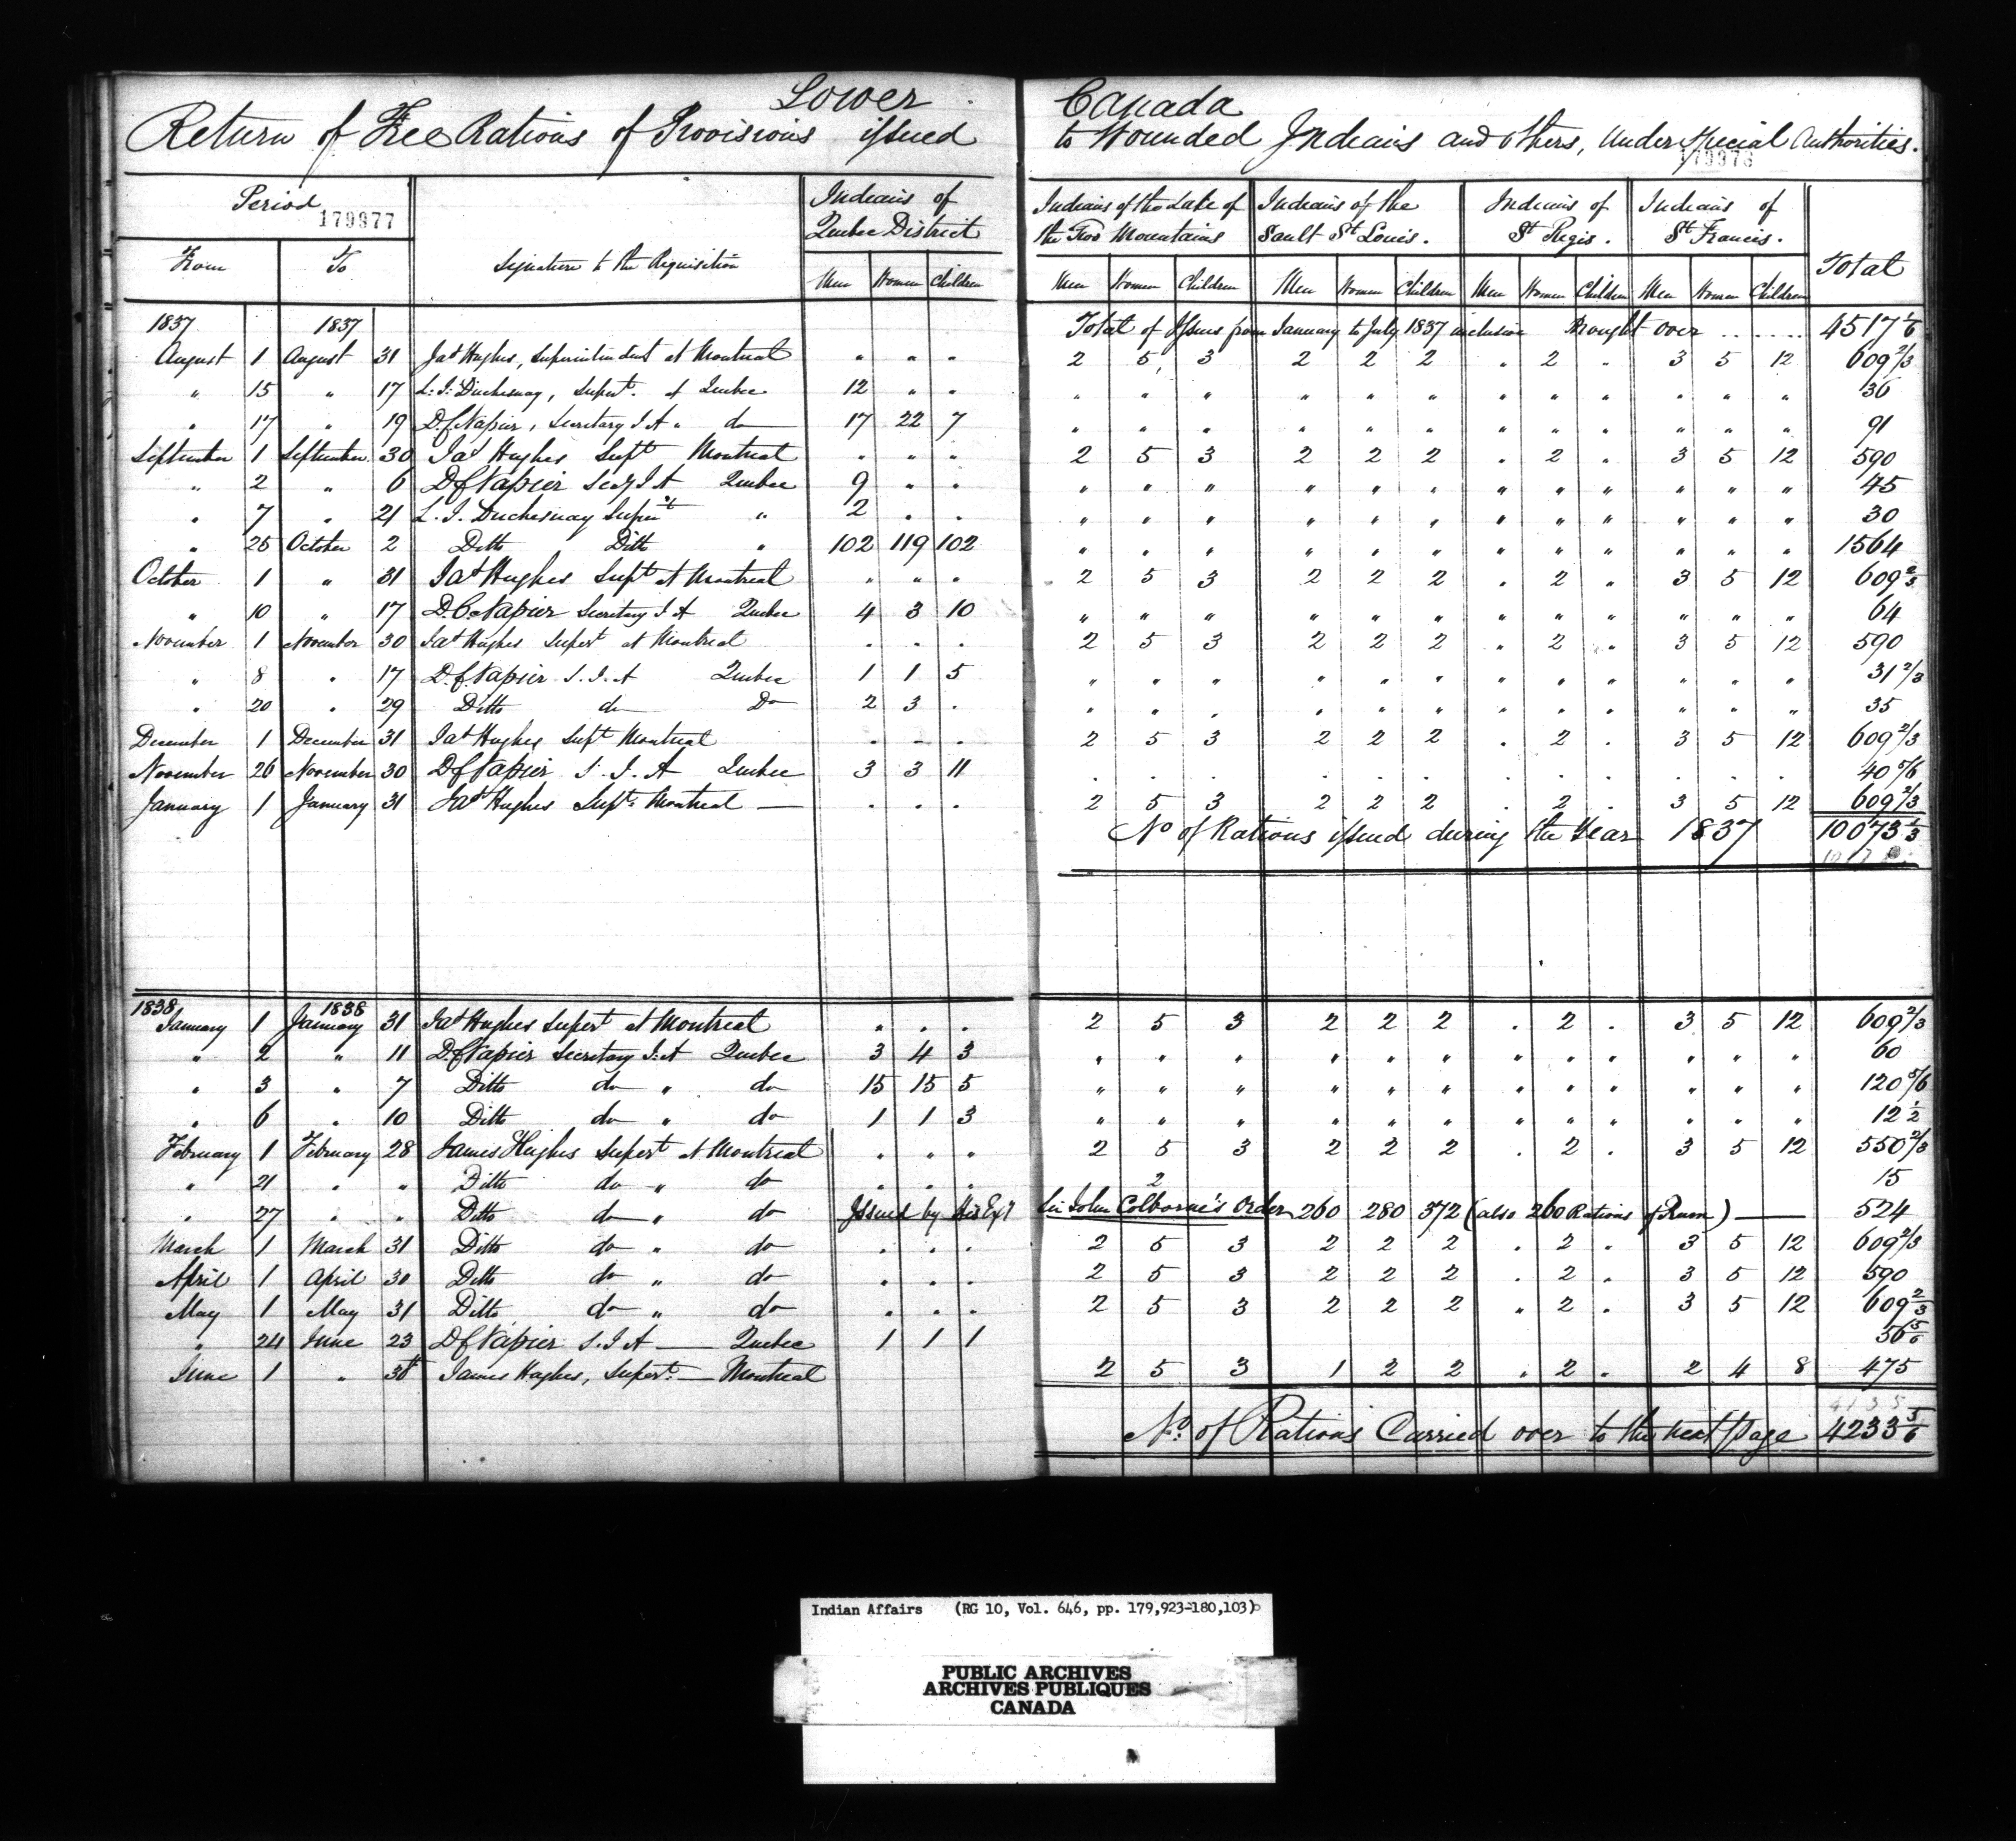 Lower Canada
Return of Free Rations of Provisions issued to Wounded Indians and others, under Special Authorities.
179977 179978
Period Signature to the Requisition Indians of Quebec District Indians of the Lake of the Two Mountains Indians of the Sault St Louis. Indians of St Regis. Indians of St Francis. Total
From To Men Women Children Men Women Children Men Women Children Men Women Children Men Women Children
1837 1837 Total of Issues from January to July 1837 inclusive Brought over ...... 4517 1/6
August 1 August 31 Jas Hughes, Superintendent at Montreal " " " 2 5 3 2 2 2 " 2 " 3 5 12 609 2/3
" 15 " 17 L: J: Duchesnay, Supert. at Quebec 12 " " " " " " " " " " " " " " 36
" 17 " 19 D.C. Napier, Secretary I A " do 17 22 7 " " " " " " " " " " " " 91
September 1 September 30 Jas Hughes Supt Montreal " " " 2 5 3 2 2 2 . 2 . 3 5 12 590
" 2 " 6 D C Napier Secy I A Quebec 9 " " " " " " " " " " " " " " 45
" 7 " 21 L. J. Duchesnay Superit " 2 . . " " " " " " " " " " " " 30
" 25 October 2 Ditto Ditto " 102 119 102 " " " " " " " " " " " " 1564
October 1 " 31 Jas Hughes Supt at Montreal " " " 2 5 3 2 2 2 . 2 " 3 5 12 609 2/3
" 10 " 17 D. C. Napier Secretary I A Quebec 4 3 10 " " " " " " " " " " " " 64
November 1 November 30 Jas Hughes Supert at Montreal . . . 2 5 3 2 2 2 " 2 . 3 5 12 590
" 8 " 17 D. C Napier S. I. A Quebec 1 1 5 " " " " " " " " " " " " 31 2/3
" 20 " 29 Ditto do Do 2 3 . " " " " " " " " " " " " 35
December 1 December 31 Jas Hughes Supt Montreal . . . 2 5 3 2 2 2 . 2 . 3 5 12 609 2/3
November 26 November 30 D C Napier S. I. A Quebec 3 3 11 . . . . . . . . . . . . 40 5/6
January 1 January 31 Jas Hughes Supt: Montreal — . . . 2 5 3 2 2 2 . 2 . 3 5 12 609 2/3
No of Rations issued during the Year 1837 10073 1/3
1838 1838
January 1 January 31 Jas Hughes Supert at Montreal . . . 2 5 3 2 2 2 . 2 . 3 5 12 609 2/3
" 2 " 11 D. C Napier Secretary I. A Quebec 3 4 3 " " " " " " " " " " " " 60
" 3 " 7 Ditto do " do 15 15 5 " " " " " " " " " " " " 120 5/6
" 6 " 10 Ditto do " do 1 1 3 " " " " " " " " " " " " 12 1/2
February 1 February 28 James Hughes Supert at Montreal . . . 2 5 3 2 2 2 . 2 . 3 5 12 550 2/3
" 21 " " Ditto do " do . . . 2 15
" 27 " " Ditto do " do Issued by His Exy Sir John Colborne's Order 260 280 372 (also 260 Rations of Rum) — 524
March 1 March 31 Ditto do " do . . . 2 5 3 2 2 2 . 2 . 3 5 12 609 2/3
April 1 April 30 Ditto do " do . . . 2 5 3 2 2 2 . 2 . 3 5 12 590
May 1 May 31 Ditto do " do . . . 2 5 3 2 2 2 " 2 . 3 5 12 609 2/3
" 24 June 23 D C Napier S. I A — Quebec 1 1 1 56 5/6
June 1 " 30 James Hughes, Supert. — Montreal 2 5 3 1 2 2 . 2 . 2 4 8 475
No. of Rations Carried over to the next page 4233 5/6
Indian Affairs (RG 10, Vol. 646, pp. 179,923-180,103)
PUBLIC ARCHIVES
ARCHIVES PUBLIQUES
CANADA